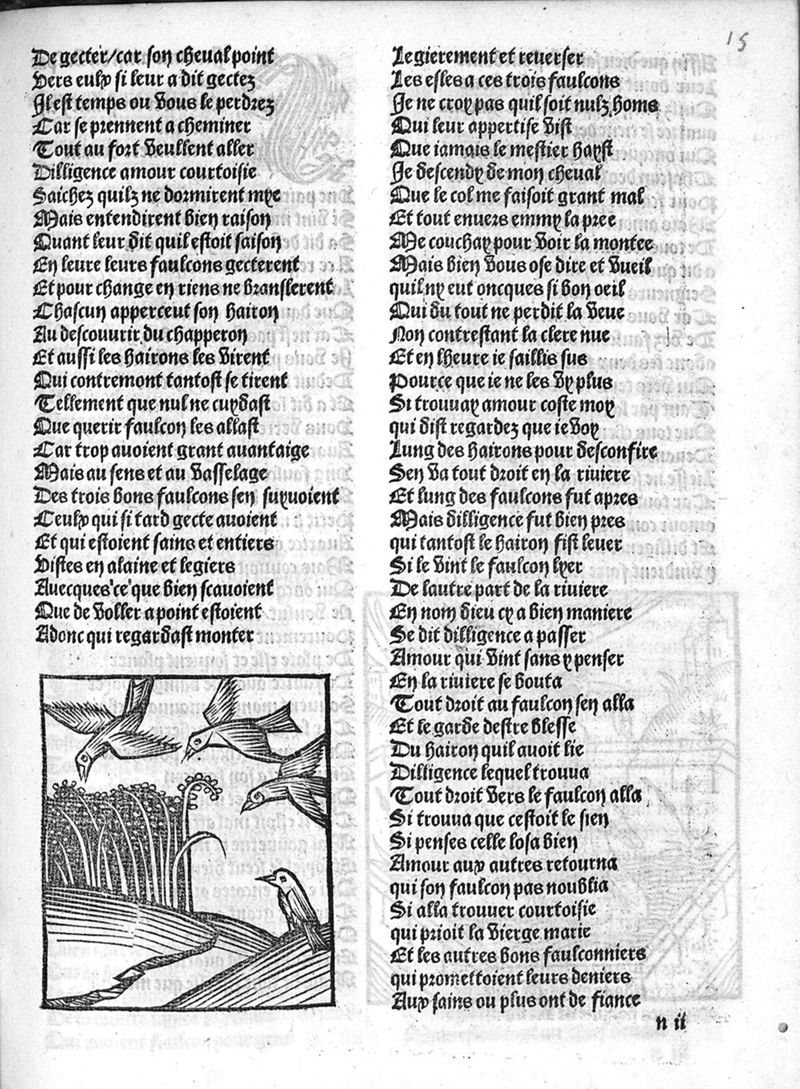 15
De gecter/car son cheval point
Vers eulx si leur a dit gectez
Il est temps ou vous le perdrez
Car se prennent a cheminer
Tout au fort veullent aller
Dilligence amour courtoisie
Saichez quilz ne dormirent mye
Mais entendirent bien raison
Quant leur dit quil estoit saison
En leure leurs faulcons gecterent
Et pour change en riens ne branslerent
Chascun apperceut son hairon
Au descouurir du chapperon
Et aussi les hairons les virent
Qui contremont tantost se tirent
Tellement que nul ne cuydast
Que querir faulcon les allast
Car trop auoient grant auantaige
Mais au sens et au vasselage
Des trois bons faulcons sen suyuoient
Ceulx qui si tard gecte auoient
Et qui estoient sains et entiers
Vistes en alaine et legiers
Auecques ce que bien scauoient
Que de voller a point estoient
Adonc qui regardast monter
Legierement et reuerser
Les esles a ces trois faulcons
Je ne croy pas quil soit nulz homs
Qui leur appertise vist
Que iamais le mestier hayst
Je descendy de mon cheval
Que le col me faisoit grant mal
Et tout enuers emmy la pree
Me couchay pour voir la montee
Mais bien vous ose dire et vueil
quil ny eut oncques si bon oeil
Qui du tout ne perdit la veue
Non contrestant la clere nue
Et en lheure ie saillis sus
Pource que ie ne les vy plus
Si trouuay amour coste moy
qui dist regardez que ie voy
Lung des hairons pour desconfire
Sen va tout droit en la riuiere
Et lung des faulcons fut apres
Mais dilligence fut bien pres
qui tantost le hairon fist leuer
Si le vint le faulcon lyer
De lautre part de la riuiere
En nom dieu cy a bien maniere
Se dit dilligence a passer
Amour qui vint sans y penser
En la riuiere se bouta
Tout droit au faulcon sen alla
Et le garde destre blesse
Du hairon quil auoit lie
Dilligence lequel trouua
Tout droit vers le faulcon alla
Si trouua que cestoit le sien
Si penses celle losa bien
Amour aux autres retourna
qui son faulcon pas noublia
Si alla trouuer courtoisie
qui prioit la vierge marie
Et les autres bons faulconniers
qui promettoient leurs deniers
Aux sains ou plus ont de fiance
n ii